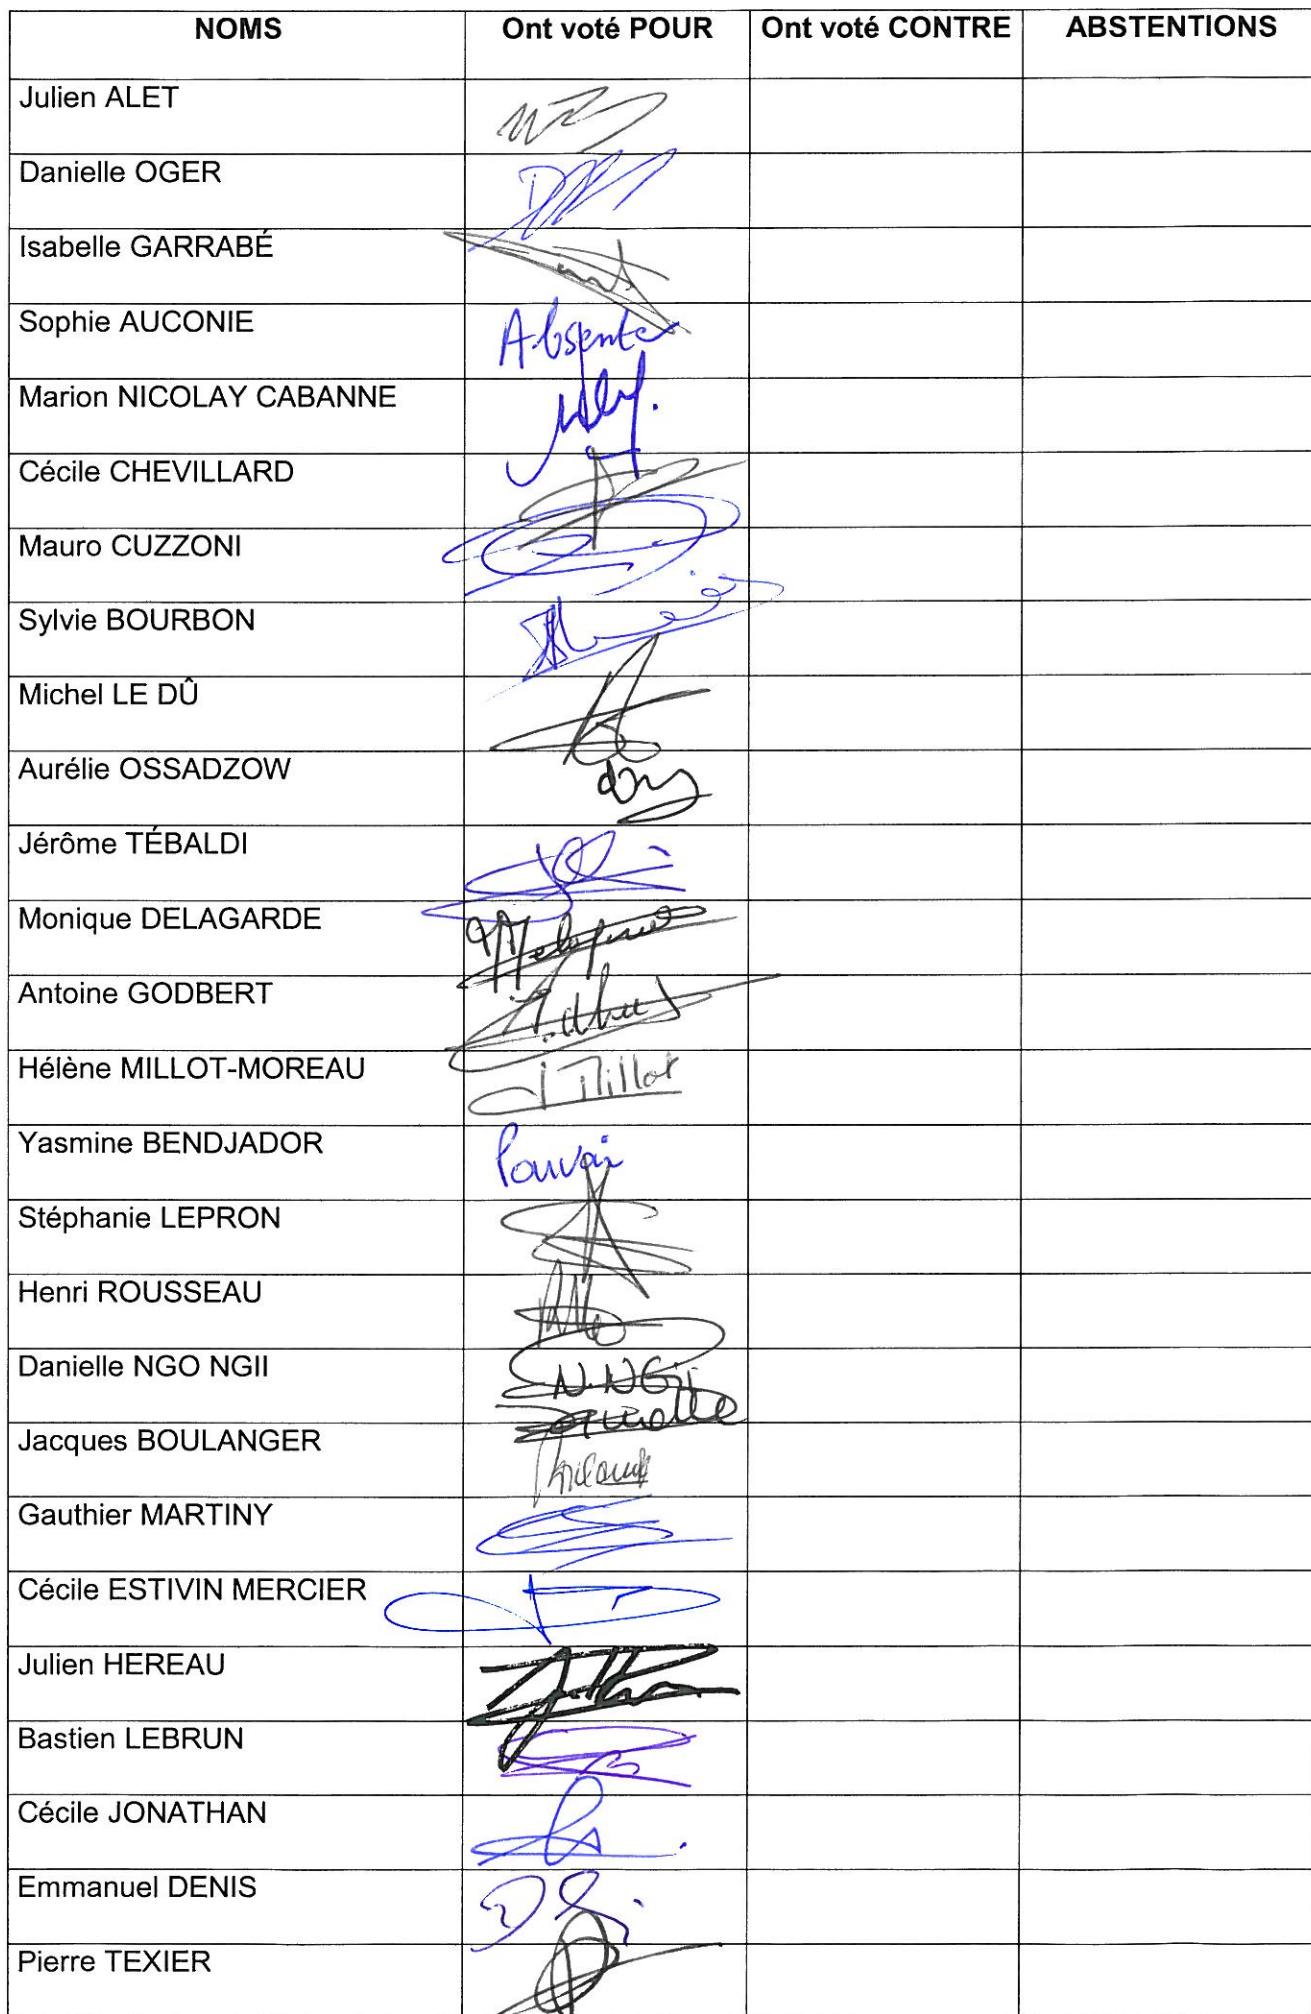 NOMS Ont voté POUR Ont voté CONTRE ABSTENTIONS
Julien ALET
Danielle OGER
Isabelle GARRABÉ
Sophie AUCONIE Absente
Marion NICOLAY CABANNE
Cécile CHEVILLARD
Mauro CUZZONI
Sylvie BOURBON
Michel LE DÛ
Aurélie OSSADZOW
Jérôme TÉBALDI
Monique DELAGARDE
Antoine GODBERT
Hélène MILLOT-MOREAU Millot
Yasmine BENDJADOR Pouvoir
Stéphanie LEPRON
Henri ROUSSEAU
Danielle NGO NGII N.NGii
Jacques BOULANGER
Gauthier MARTINY
Cécile ESTIVIN MERCIER
Julien HEREAU
Bastien LEBRUN
Cécile JONATHAN
Emmanuel DENIS
Pierre TEXIER